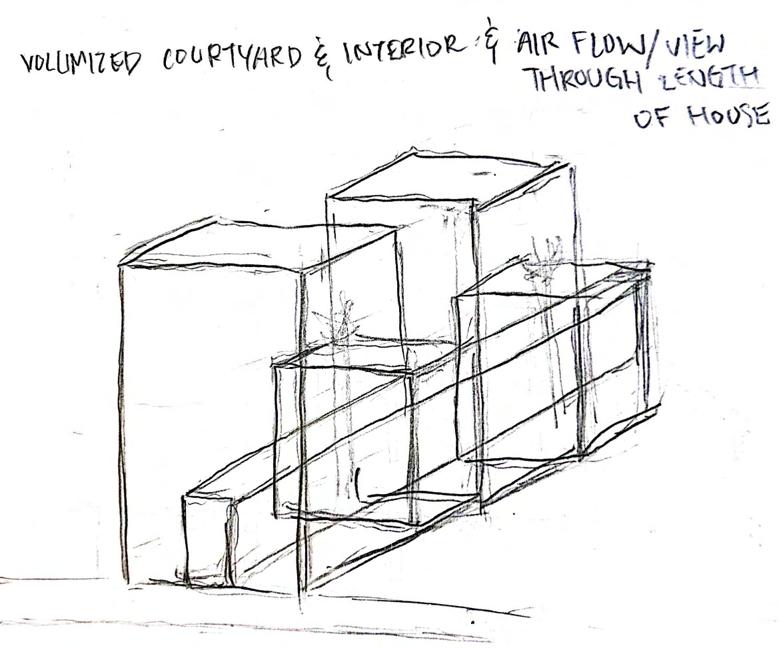 VOLUMIZED COURTYARD & INTERIOR & AIR FLOW/VIEW
THROUGH LENGTH
OF HOUSE